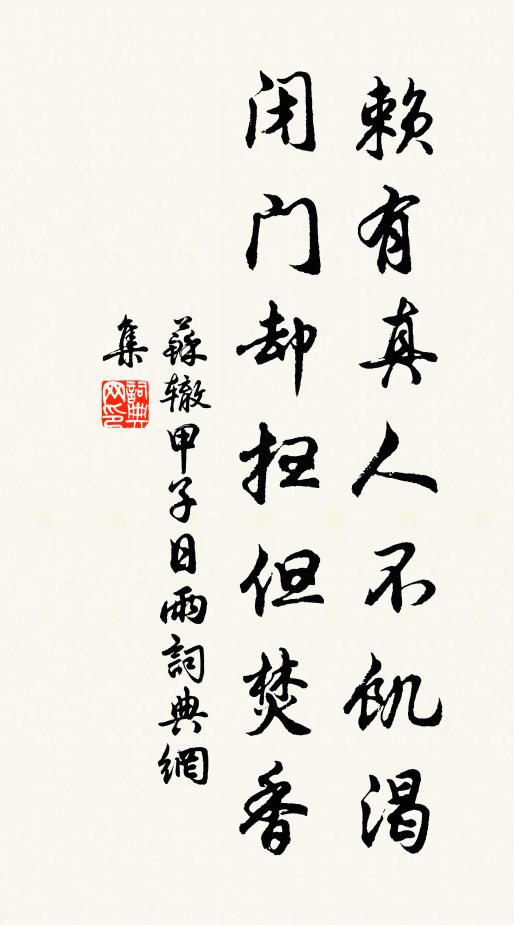 赖有真人不饥渴
闭门却扫但焚香
蘇辙甲子日雨詞典網
集
詞典网印